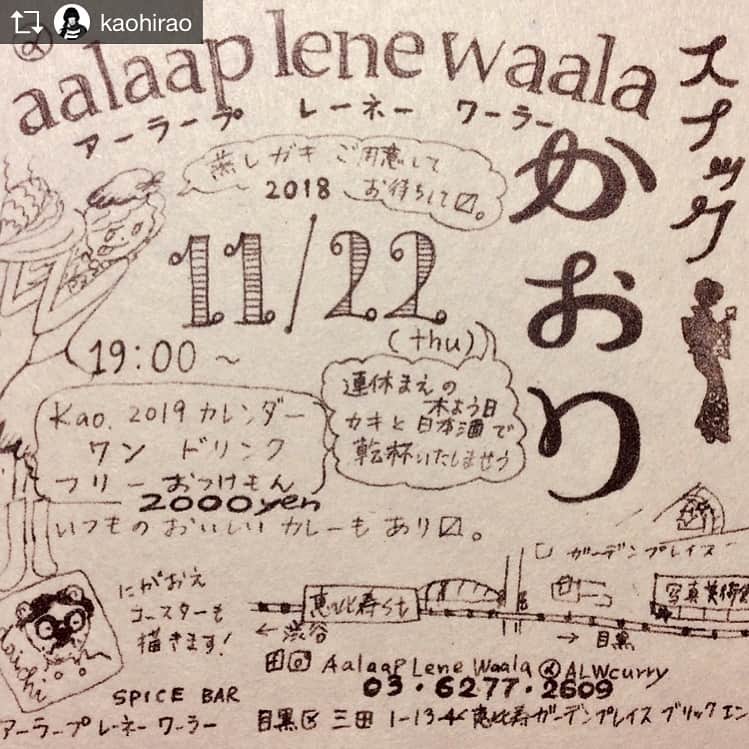 kaohirao
aalaap lene waala
アーラープ レーネー ワーラー
スナック
かおり
蒸しガキ ご用意して
2018 お待ちして〼。
11/22
(thu)
19:00〜
連休まえの
木よう日
カキと日本酒で
乾杯いたしませう
Kao. 2019 カレンダー
ワン ドリンク
フリー おつけもん
2000yen
いつもの おいしい カレーも あり〼。
ガーデンプレイス
にがおえ
コースターも
描きます!
恵比寿
写真美術
← 渋谷
→ 目黒
Aalaap Lene Waala @ALWcurry
03・6277・2609
SPICE BAR
アーラープ レーネー ワーラー
目黒区 三田 1-13-4 恵比寿ガーデンプレイス ブリック エン